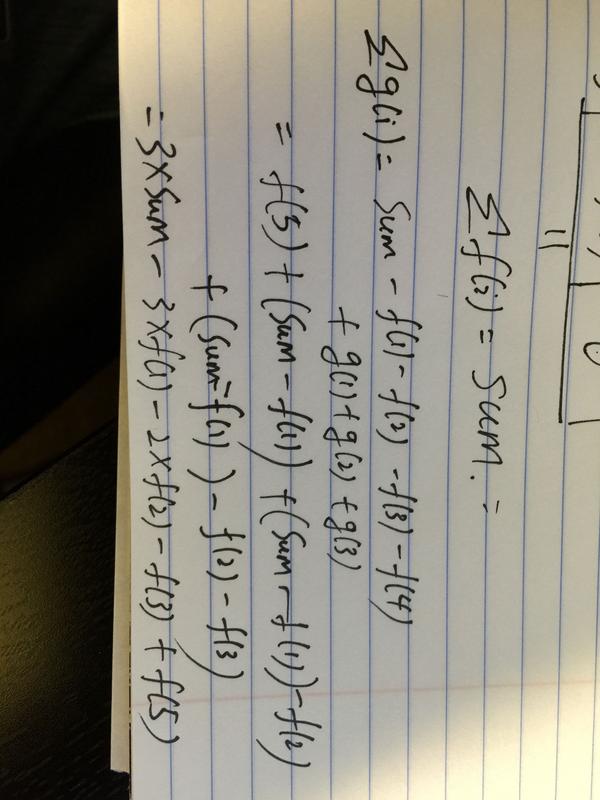 Σf(i) = Sum. =
Σg(i) = Sum - f(1) - f(2) - f(3) - f(4)
+ g(1) + g(2) + g(3)
= f(5) + (Sum - f(1)) + (Sum - f(1)) - f(2)
+ (Sum - f(1)) - f(2) - f(3)
= 3×Sum - 3×f(1) - 2×f(2) - f(3) + f(5)